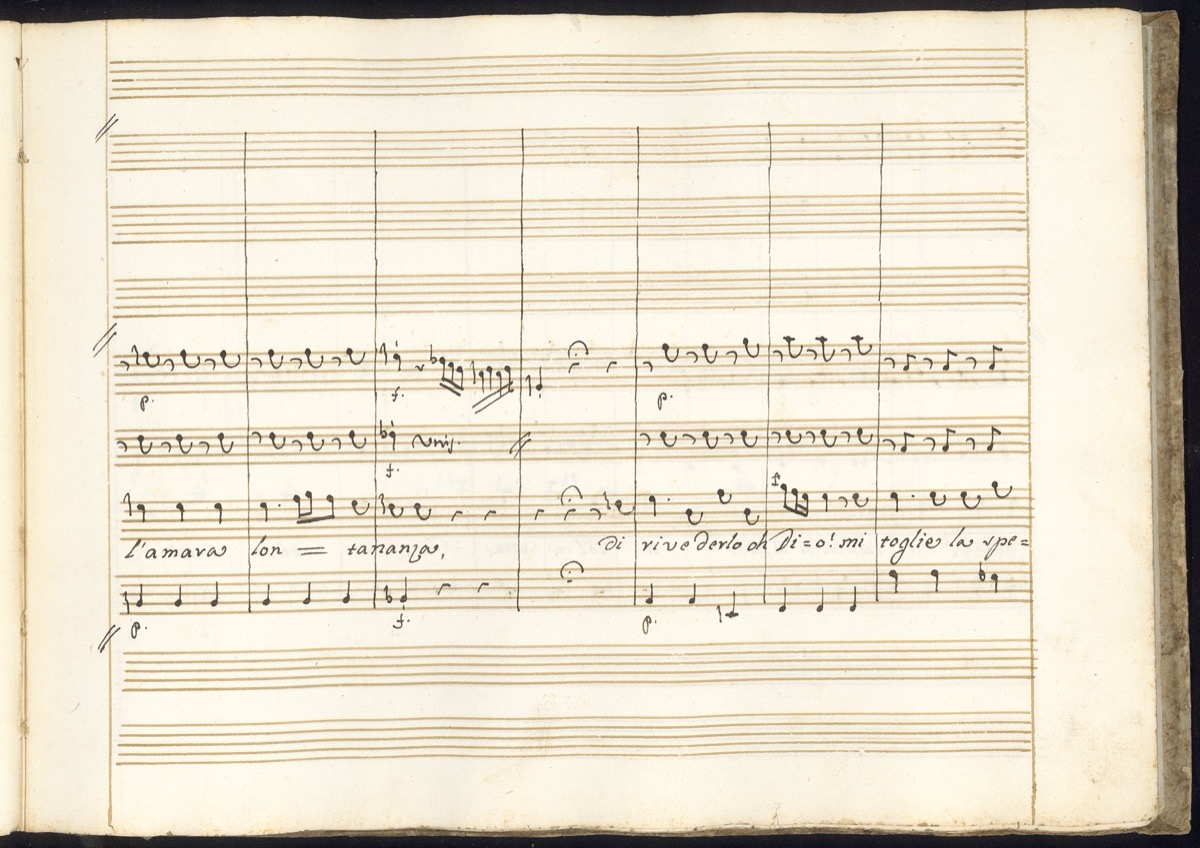 p. f. p.
f. Unis.
l'amara lon = tananza, di rivederlo oh Di=o! mi toglie la spe=
p. f. p.